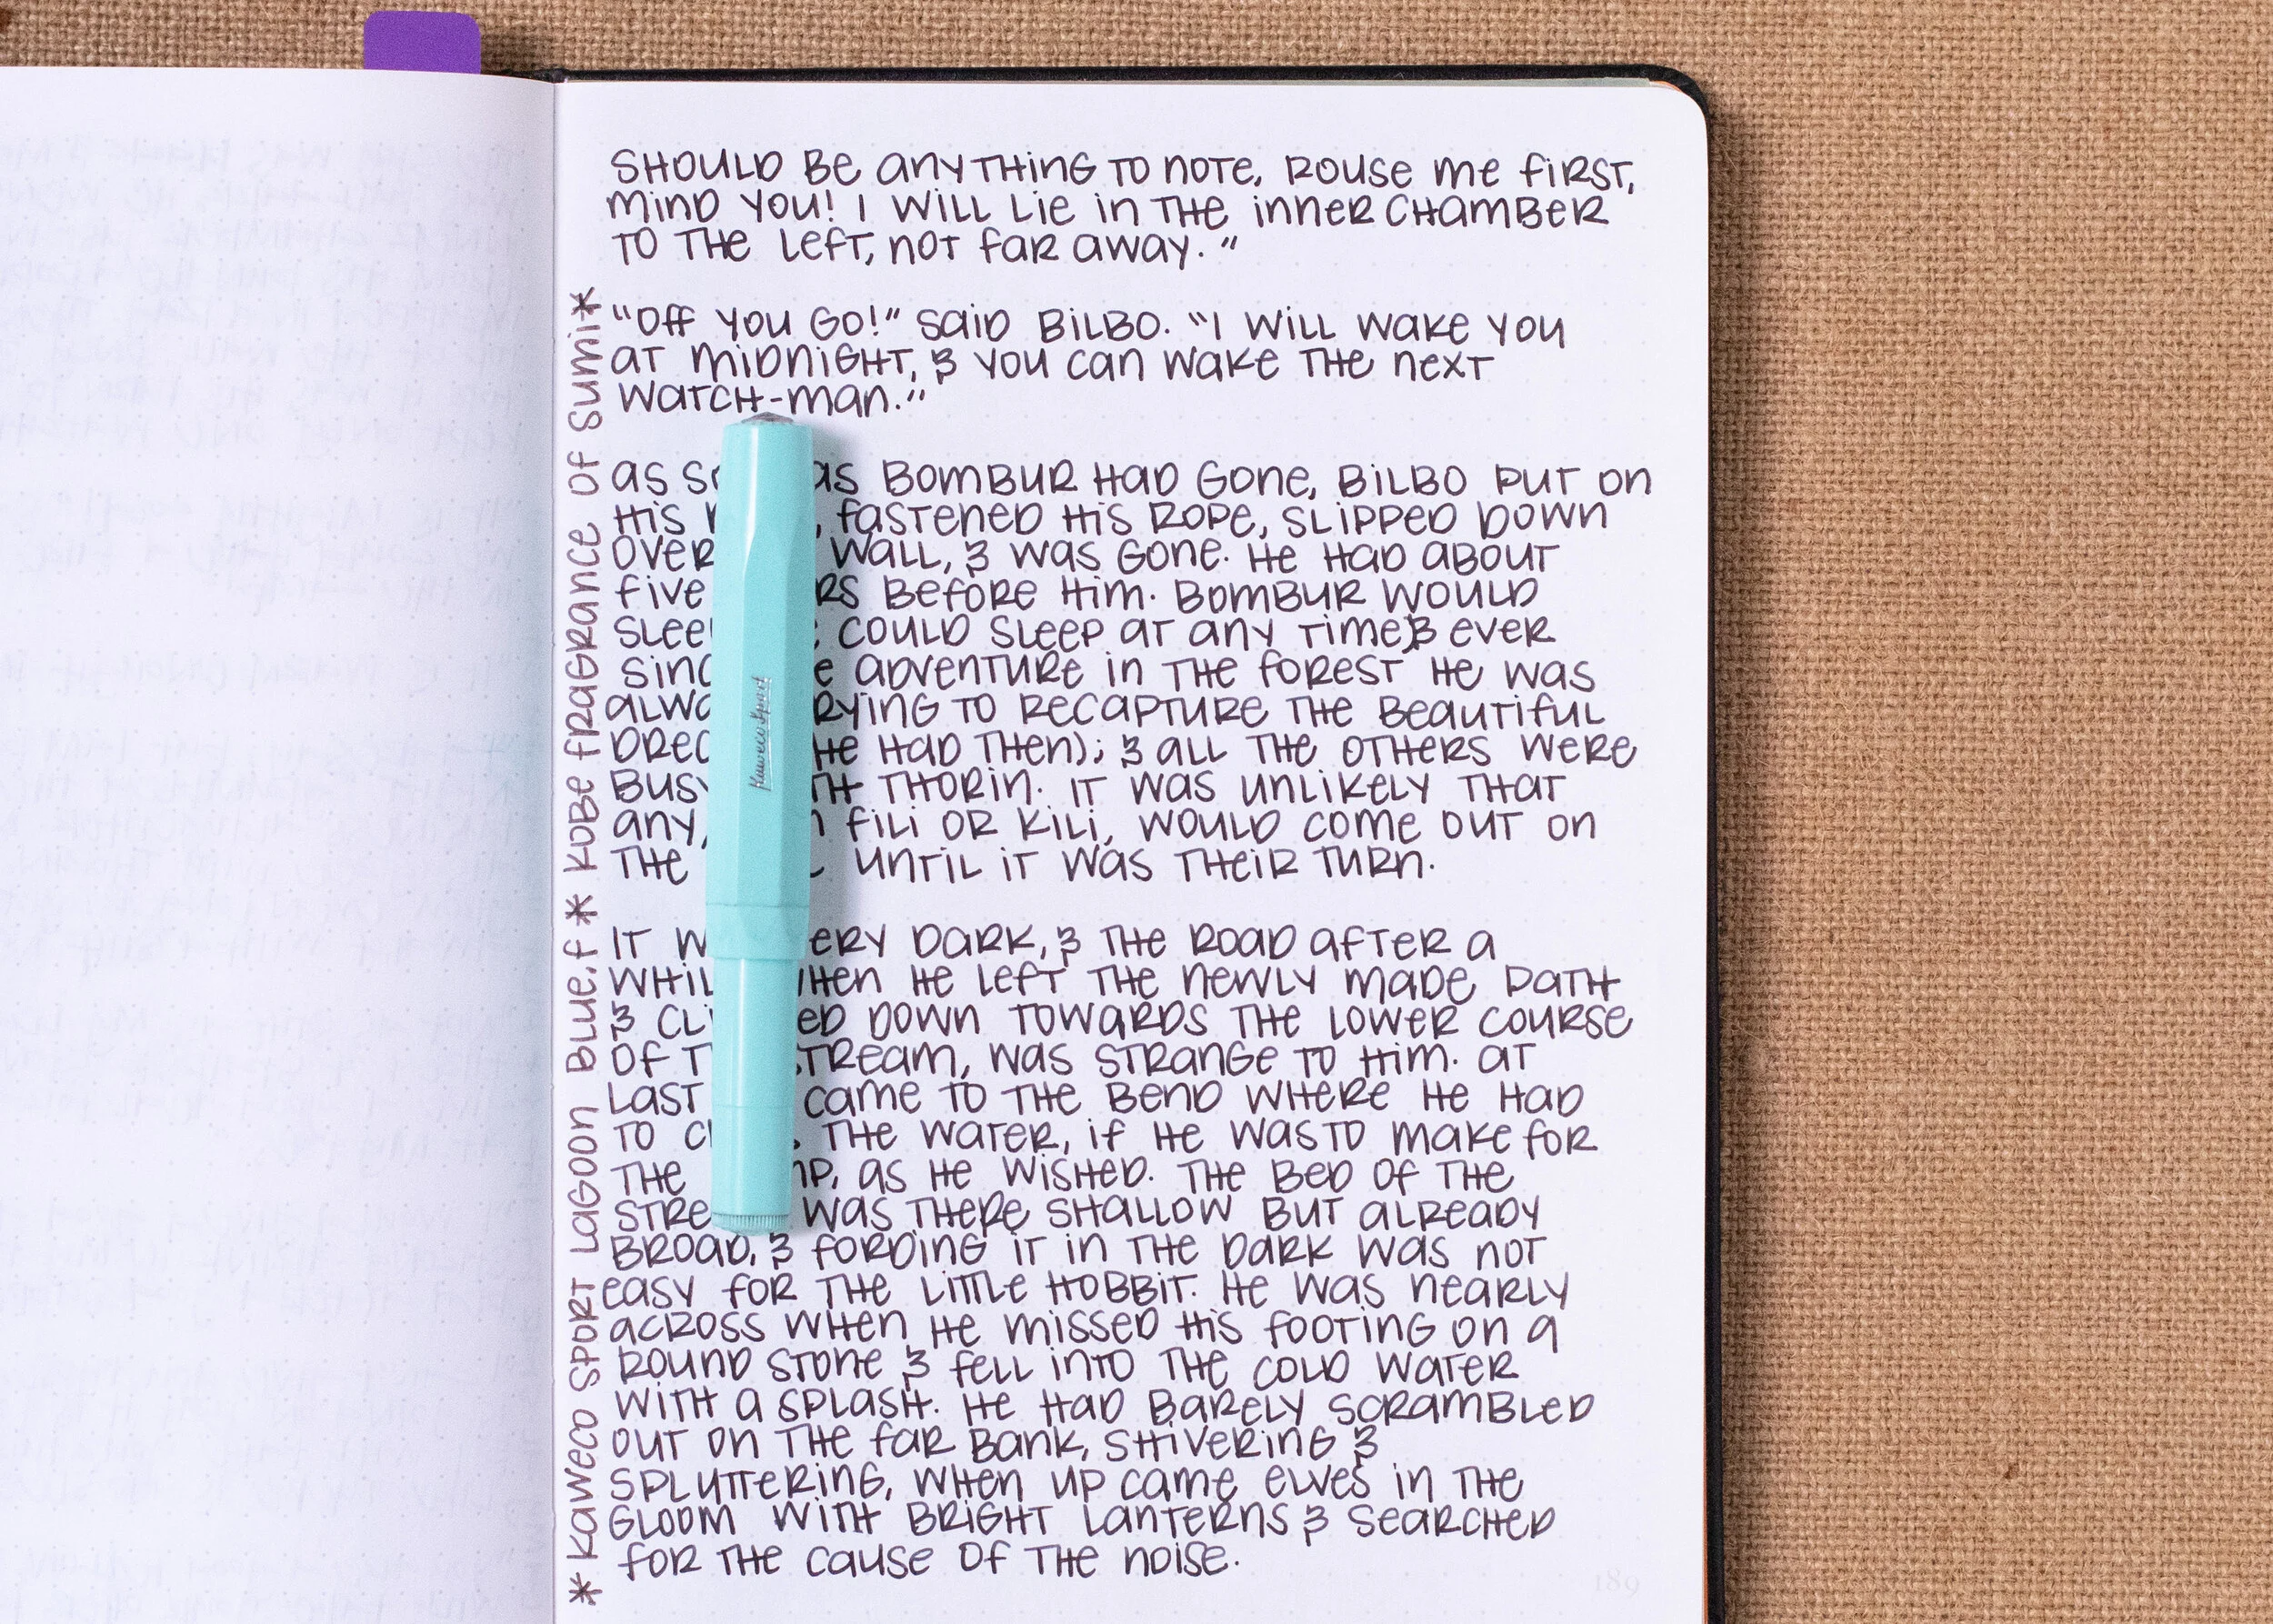 SHOULD BE ANYTHING TO NOTE, ROUSE ME FIRST,
MIND YOU! I WILL LIE IN THE INNER CHAMBER
TO THE LEFT, NOT FAR AWAY."
"OFF YOU GO!" SAID BILBO. "I WILL WAKE YOU
AT MIDNIGHT, & YOU CAN WAKE THE NEXT
WATCH-MAN."
AS AS BOMBUR HAD GONE, BILBO PUT ON
HIS FASTENED HIS ROPE, SLIPPED DOWN
OVER WALL, & WAS GONE. HE HAD ABOUT
FIVE BEFORE HIM. BOMBUR WOULD
COULD SLEEP AT ANY TIME, & EVER
ADVENTURE IN THE FOREST HE WAS
TO RECAPTURE THE BEAUTIFUL
HE HAD THEN); & ALL THE OTHERS WERE
BUSY THORIN. IT WAS UNLIKELY THAT
ANY, FILI OR KILI, WOULD COME OUT ON
THE UNTIL IT WAS THEIR TURN.
IT DARK, & THE ROAD AFTER A
WHEN HE LEFT THE NEWLY MADE PATH
& DOWN TOWARDS THE LOWER COURSE
OF STREAM, WAS STRANGE TO HIM. AT
LAST CAME TO THE BEND WHERE HE HAD
TO THE WATER, IF HE WAS TO MAKE FOR
THE AS HE WISHED. THE BED OF THE
WAS THERE SHALLOW BUT ALREADY
BROAD, & FORDING IT IN THE DARK WAS NOT
EASY FOR THE LITTLE HOBBIT. HE WAS NEARLY
ACROSS WHEN HE MISSED HIS FOOTING ON A
ROUND STONE & FELL INTO THE COLD WATER
WITH A SPLASH. HE HAD BARELY SCRAMBLED
OUT ON THE FAR BANK, SHIVERING &
SPLUTTERING, WHEN UP CAME ELVES IN THE
GLOOM WITH BRIGHT LANTERNS & SEARCHED
FOR THE CAUSE OF THE NOISE.
* KAWECO SPORT LAGOON BLUE, F * KOBE FRAGRANCE OF SUMI *
Kaweco Sport
189